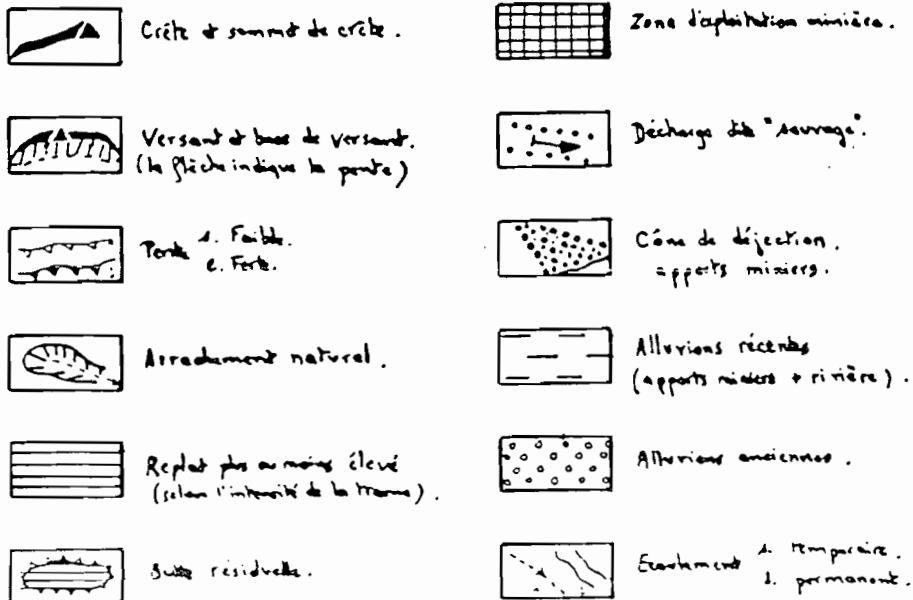 Crête et sommet de crête.
Versant et base de versant.
(la flèche indique la pente)
Pente 1. Faible.
2. Forte.
Arrachement natural.
Replat plus ou moins élevé
(selon l'intensité de la trame).
Butte résiduelle.
Zone d'exploitation minière.
Décharge dite "sauvage".
Cône de déjection.
apports miniers.
Alluvions récentes
(apports miniers + rivière).
Alluvions anciennes.
Ecoulement 1. temporaire.
2. permanent.